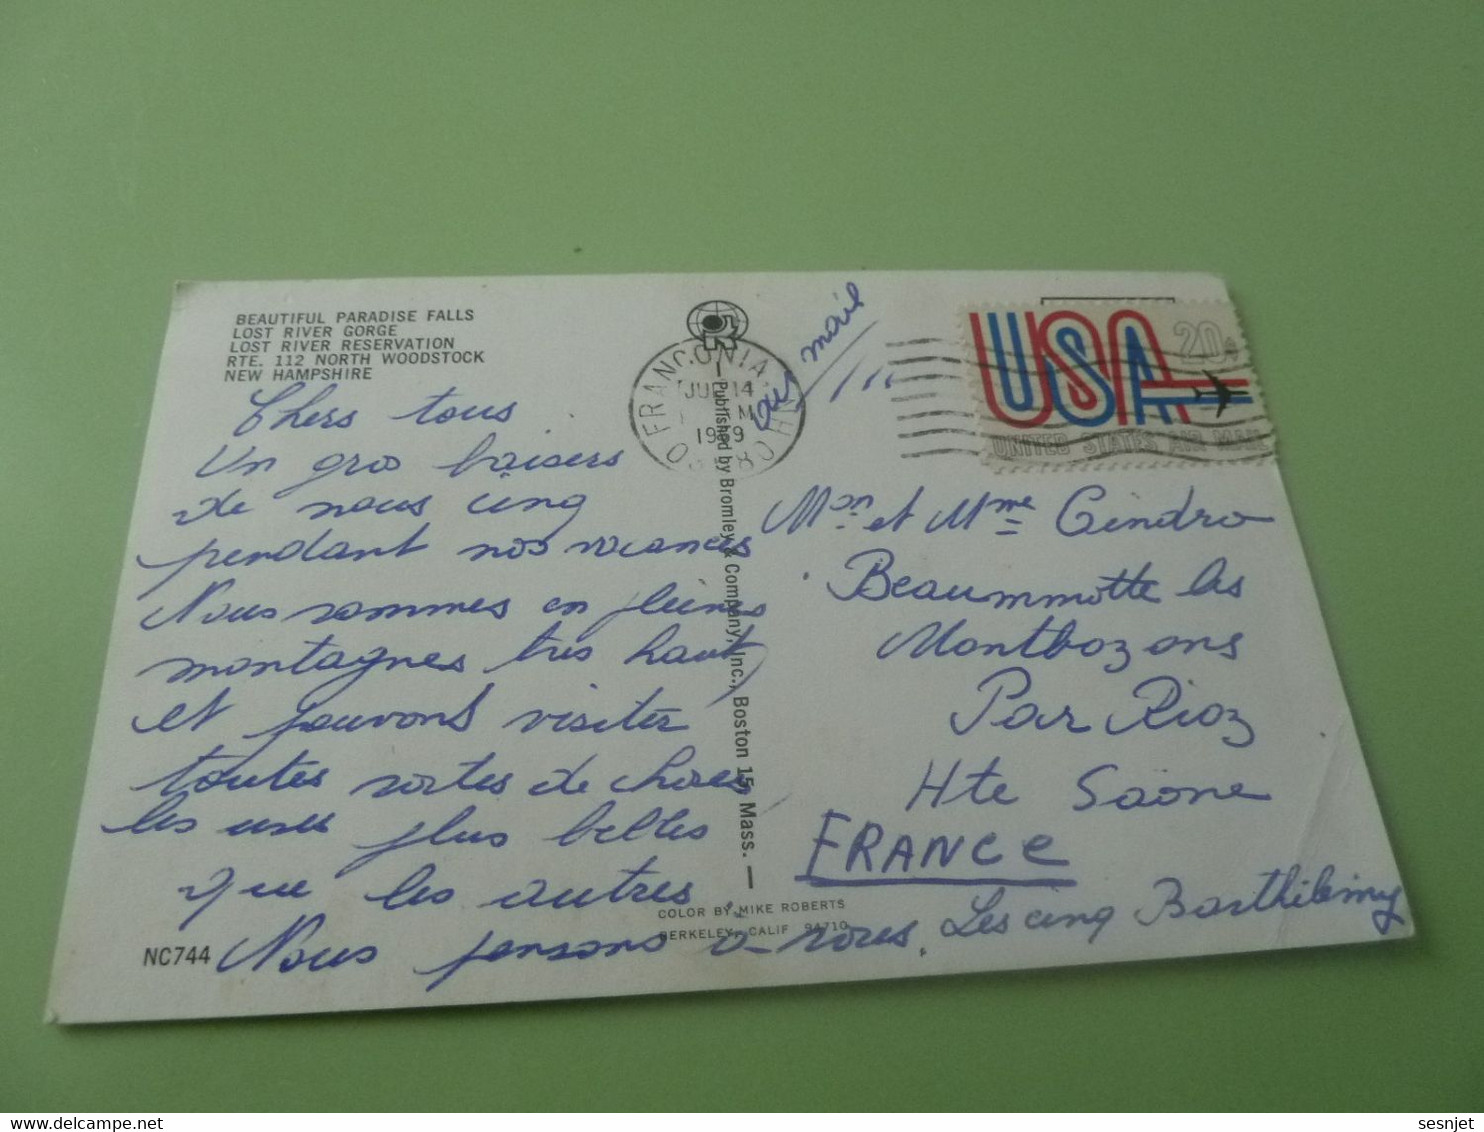 BEAUTIFUL PARADISE FALLS
LOST RIVER GORGE
LOST RIVER RESERVATION
RTE. 112 NORTH WOODSTOCK
NEW HAMPSHIRE
Chers tous
Un gros baisers
de nous cinq
pendant nos vacances
Nous sommes en pleines
montagnes très haut
et pouvons visiter
toutes sortes de choses
les unes plus belles
que les autres
Nous pensons à vous.
Les cinq Barthélémy
NC744
FRANCONIA NH
14
M
19 9
Published by Bromley & Company, Inc., Boston 15, Mass.
mail
USA 20
UNITED STATES AIR MAIL
Mon et Mme Cindro
Beaummotte les
Montbozons
Par Rioz
Hte Saône
FRANCE
COLOR BY MIKE ROBERTS
BERKELEY, CALIF 94710
sesnjet